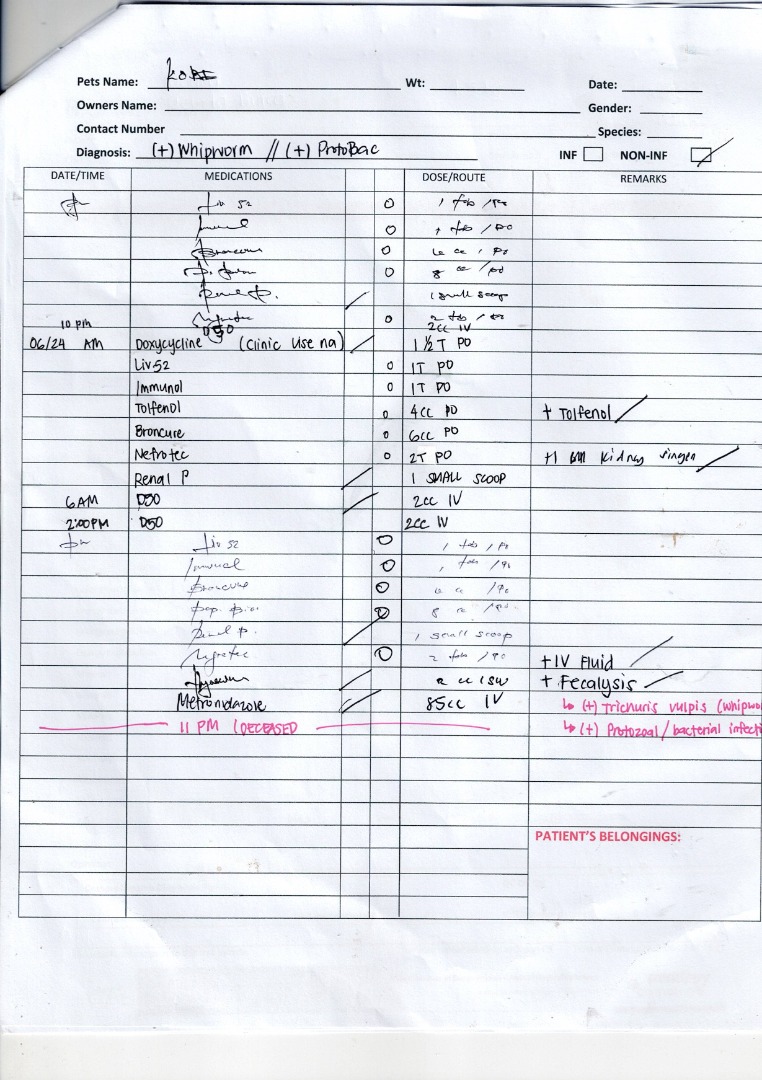 Pets Name: KOBE Wt: Date:
Owners Name: Gender:
Contact Number Species:
Diagnosis: (+) Whipworm // (+) ProtoBac INF NON-INF
DATE/TIME MEDICATIONS DOSE/ROUTE REMARKS
Liv 52 1 tab / PO
1 tab / PO
Broncure 6 cc / PO
8 cc / PO
Renal P. 1 small scoop
Nefrotec 2 tab / PO
10 pm D50 2cc IV
06/24 AM Doxycycline (Clinic Use na) 1 ½ T PO
Liv52 1T PO
Immunol 1T PO
Tolfenol 4cc PO + Tolfenol
Broncure 6cc PO
Nefrotec 2T PO +1 Kidney
Renal P 1 SMALL SCOOP
6AM D50 2cc IV
2:00PM D50 2cc IV
Liv 52 1 tab / PO
Immunol 1 tab / PO
Broncure 6 cc / PO
8 cc / PO
Renal P. 1 small scoop
Nefrotec 2 tab / PO + IV Fluid
2 cc + Fecalysis
Metronidazole 85cc IV ↳ (+) Trichuris vulpis (Whipwo
11 PM (DECEASED ↳ (+) Protozoal / bacterial infecti
PATIENT'S BELONGINGS: